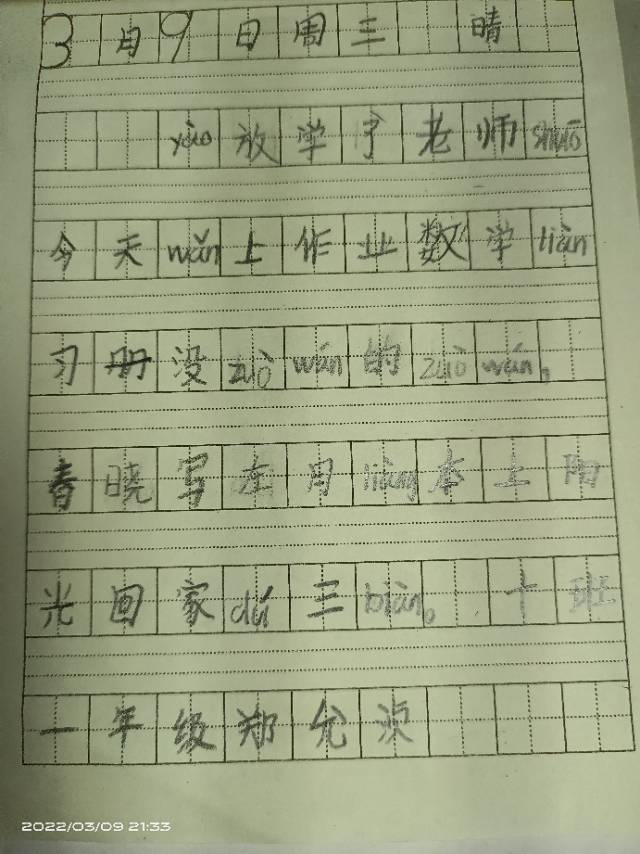 3月9日周三 晴
yào放学了老师shuō
今天wǎn上作业数学liàn
习册没zuò wán的zuò wán。
春晓写在月liàng本上阳
光回家dú三biàn。 十班
一年级郑允
2022/03/09 21:33